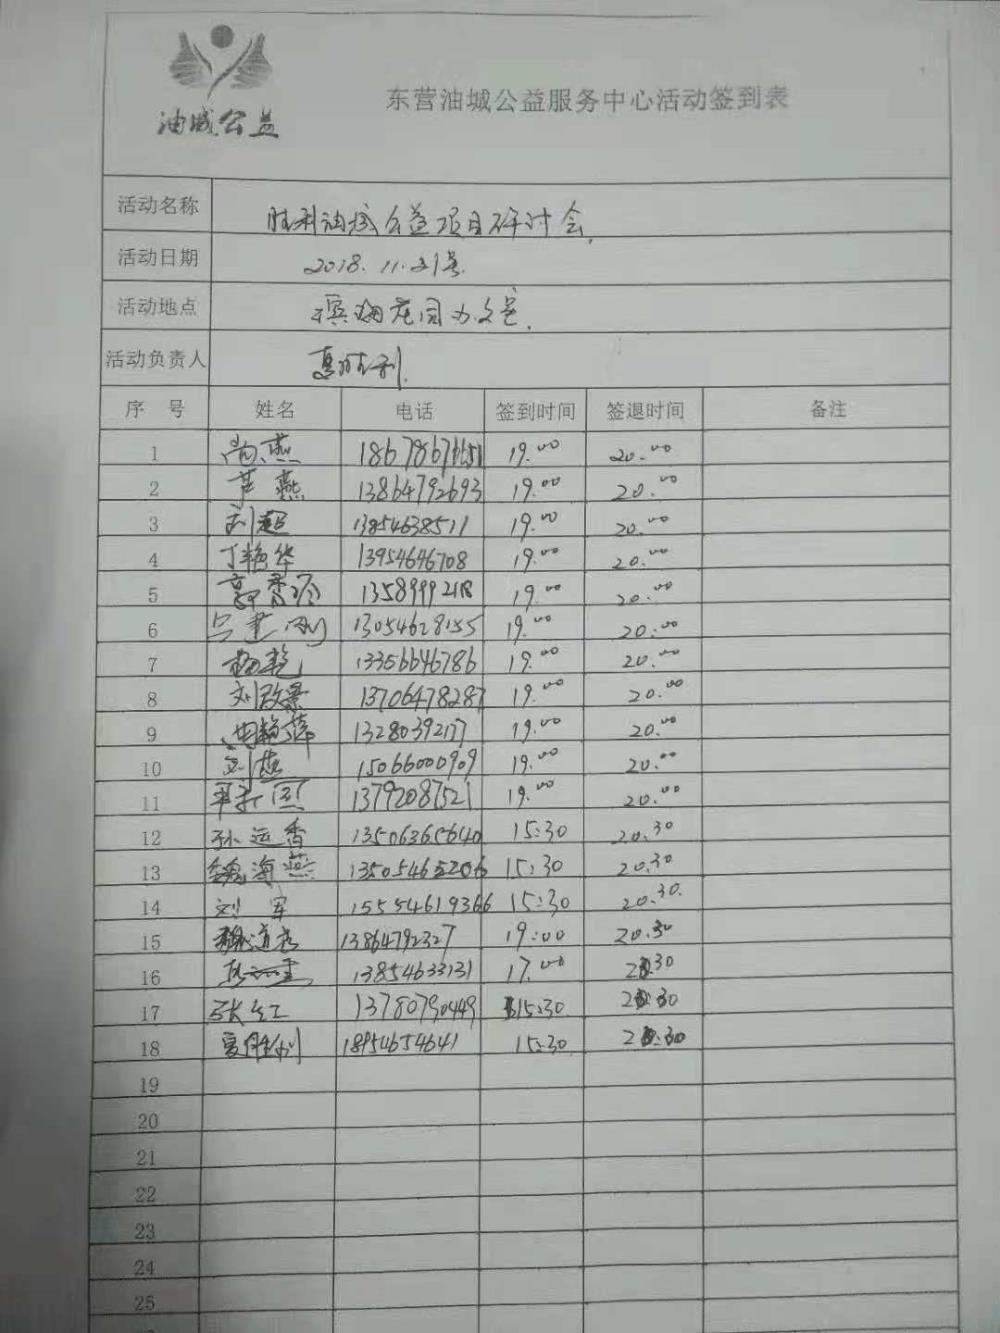 油城公益
东营油城公益服务中心活动签到表
活动名称 胜利油城公益项目研讨会
活动日期 2018.11.21号
活动地点 滨海花园办公室
活动负责人 夏胜利
序 号 姓名 电话 签到时间 签退时间 备注
1 尚燕 19.00 20.00
2 燕 13864792693 19.00 20.00
3 刘超 13854638511 19.00 20.00
4 丁艳华 13954646708 19.00 20.00
5 郭香玲 13589992118 19.00 20.00
6 吕建刚 13054628155 19.00 20.00
7 杨艳 13356646786 19.00 20.00
8 刘改景 13706478287 19.00 20.00
9 周艳萍 13280392177 19.00 20.00
10 刘燕 15066000909 19.00 20.00
11 13792087521 19.00 20.00
12 孙运香 13506365640 15:30 20.30
13 魏海燕 13505465206 15:30 20.30
14 刘军 15554619366 15:30 20.30.
15 13864792327 19:00 20.30
16 13854633131 17.00 20.30
17 张红 13780790449 15:30 20:30
18 夏胜利 18954654641 15:30 20:30
19
20
21
22
23
24
25